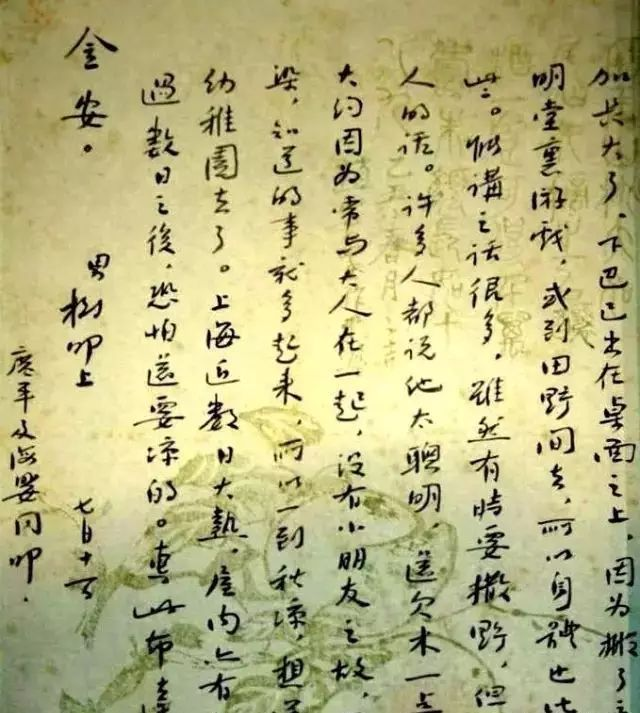 加其大了，下巴已出在桌面之上，因为搬了
明堂里游戏，或到田野间去，所以身体也比
些。能讲之话很多，虽然有時要撒野，但
人的话。许多人都说他太聰明，还欠木一点
大约因为常与大人在一起，没有小朋友之故，
染，知道的事就多起来，所以一到秋凉，想
幼稚園去了。上海近數日大熱，屋内亦有
過數日之後，恐怕还要凉的。專此布達
金安。
男 樹叩上
七月十二日
廣平及海嬰同叩。